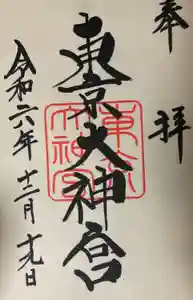 奉拝
東京大神宮
令和六年十二月十九日
東京
大神宮